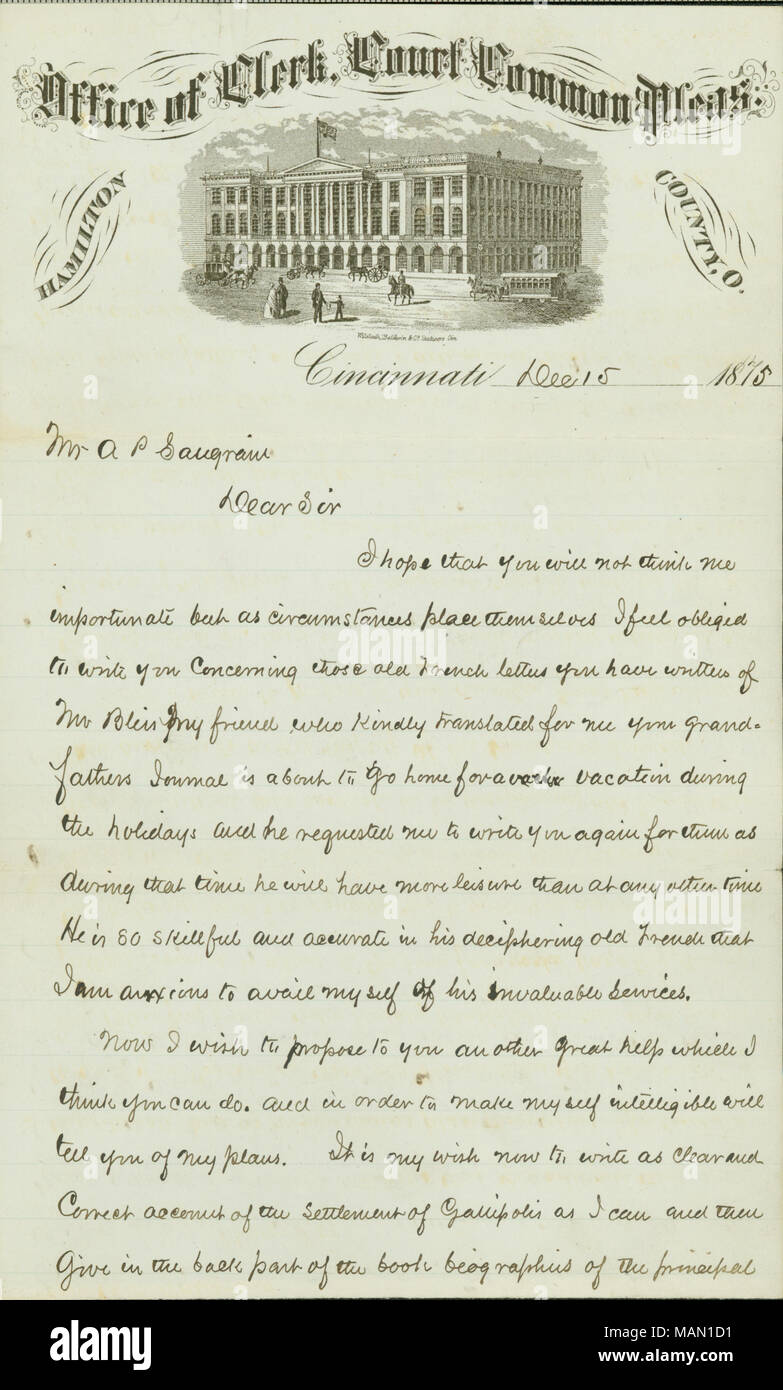 Office of Clerk, Court Common Pleas:
HAMILTON COUNTY, O.
Wilstach, Baldwin & Co. Stationers Cin.
Cincinnati Dec 15 1875
Mr A P Saugrain
Dear Sir
I hope that you will not think me
importunate but as circumstances place themselves I feel obliged
to write you Concerning those old French letters you have written of
Mr Bliss my friend who Kindly translated for me your grand=
fathers Journal is about to go home for a vacation during
the holidays and he requested me to write you again for them as
during that time he will have more leisure than at any other time
He is so skillful and accurate in his deciphering old French that
I am anxious to avail myself of his invaluable services.
Now I wish to propose to you another great help which I
think you can do. and in order to make myself intelligible will
tell you of my plans. It is my wish now to write as clear and
Correct account of the settlement of Gallipolis as I can and then
Give in the back part of the book biographies of the principal
alamy
Image ID: MAN1D1
www.alamy.com